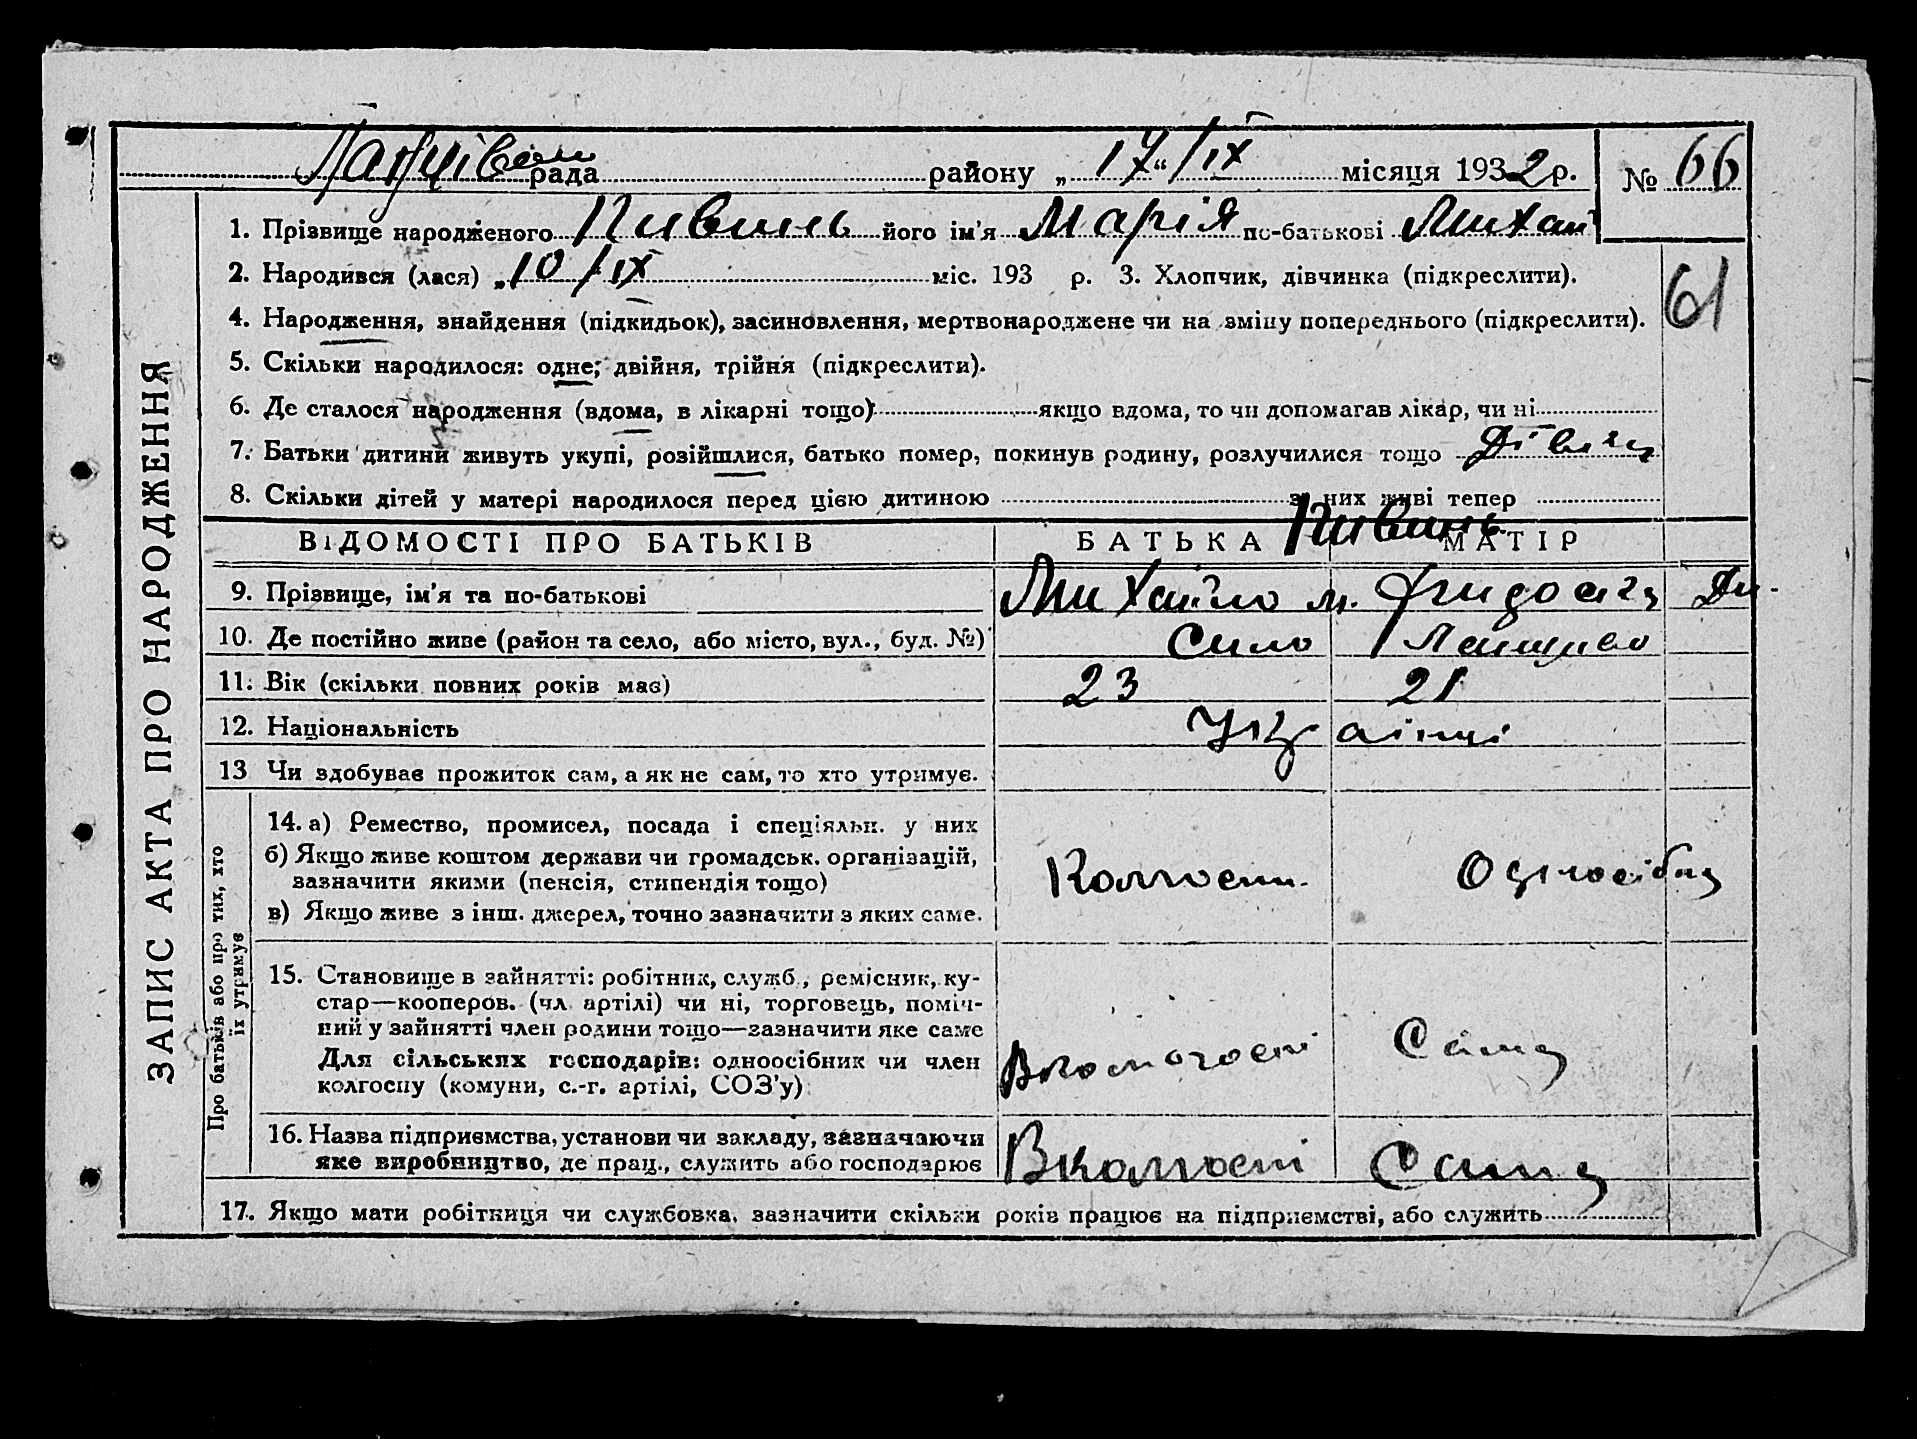 рада району „ 17 “ / IX місяця 1932 р. № 66
1. Прізвище народженого Пивинь його ім'я Марія по-батькові Михай
2. Народився (лася) „ 10 / IX міс. 193 р. 3. Хлопчик, дівчинка (підкреслити).
61
4. Народження, знайдення (підкидьок), засиновлення, мертвонароджене чи на зміну попереднього (підкреслити).
5. Скільки народилося: одне, двійня, трійня (підкреслити).
6. Де сталося народження (вдома, в лікарні тощо) якщо вдома, то чи допомагав лікар, чи ні
7. Батьки дитини живуть укупі, розійшлися, батько помер, покинув родину, розлучилися тощо
8. Скільки дітей у матері народилося перед цією дитиною з них живі тепер
Пивинь
ВІДОМОСТІ ПРО БАТЬКІВ БАТЬКА МАТІР
9. Прізвище, ім'я та по-батькові Михайло м.
10. Де постійно живе (район та село, або місто, вул., буд. №) Село
11. Вік (скільки повних років має) 23 21
12. Національність Українці
13 Чи здобуває прожиток сам, а як не сам, то хто утримує.
14. а) Ремество, промисел, посада і спеціяльн. у них
б) Якщо живе коштом держави чи громадськ. організацій,
зазначити якими (пенсія, стипендія тощо) Колгосп. Одноосібна
в) Якщо живе з інш. джерел, точно зазначити з яких саме.
15. Становище в зайнятті: робітник, служб., ремісник, ку-
стар—кооперов. (чл. артілі) чи ні, торговець, поміч-
ний у зайнятті член родини тощо—зазначити яке саме
Для сільських господарів: одноосібник чи член Вколгоспі Сама
колгоспу (комуни, с.-г. артілі, СОЗ'у)
16. Назва підприємства, установи чи закладу, зазначаючи
яке виробництво, де прац., служить або господарює Вколгоспі Сама
17. Якщо мати робітниця чи службовка, зазначити скільки років працює на підприємстві, або служить
ЗАПИС АКТА ПРО НАРОДЖЕННЯ
Про батьків або про тих, хто
їх утримує